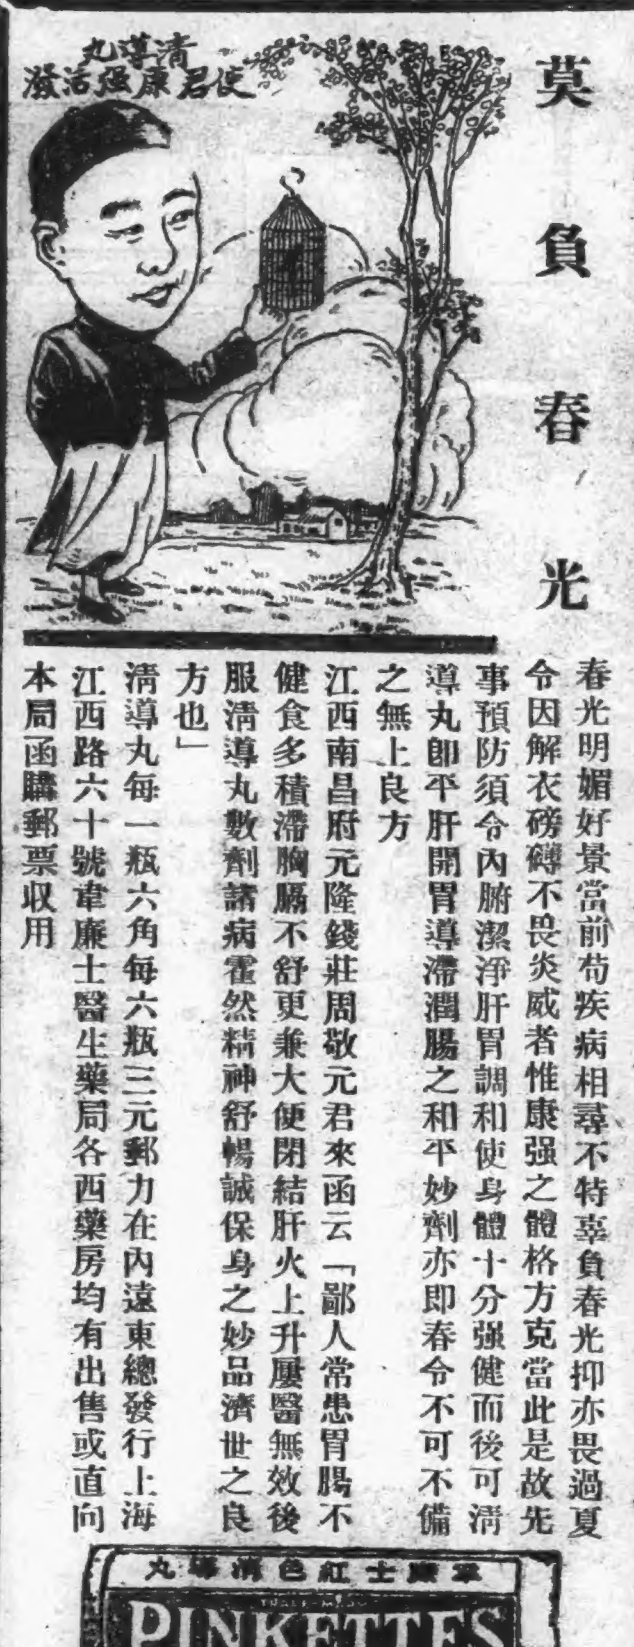 莫負春光
清導丸
使君康强活潑
春光明媚好景當前苟疾病相尋不特辜負春光抑亦畏過夏
令因解衣磅礡不畏炎威者惟康强之體格方克當此是故先
事預防須令內腑潔淨肝胃調和使身體十分强健而後可淸
導丸卽平肝開胃導滯潤腸之和平妙劑亦即春令不可不備
之無上良方
江西南昌府元隆錢莊周敬元君來函云「鄙人常患胃腸不
健食多積滯胸膈不舒更兼大便閉結肝火上升屢醫無效後
服淸導丸數劑諸病霍然精神舒暢誠保身之妙品濟世之良
方也」
淸導丸每一瓶六角每六瓶三元郵力在內遠東總發行上海
江西路六十號韋廉士醫生藥局各西藥房均有出售或直向
本局函購郵票収用
韋廉士紅色清導丸
TRADE-MARK
PINKETTES